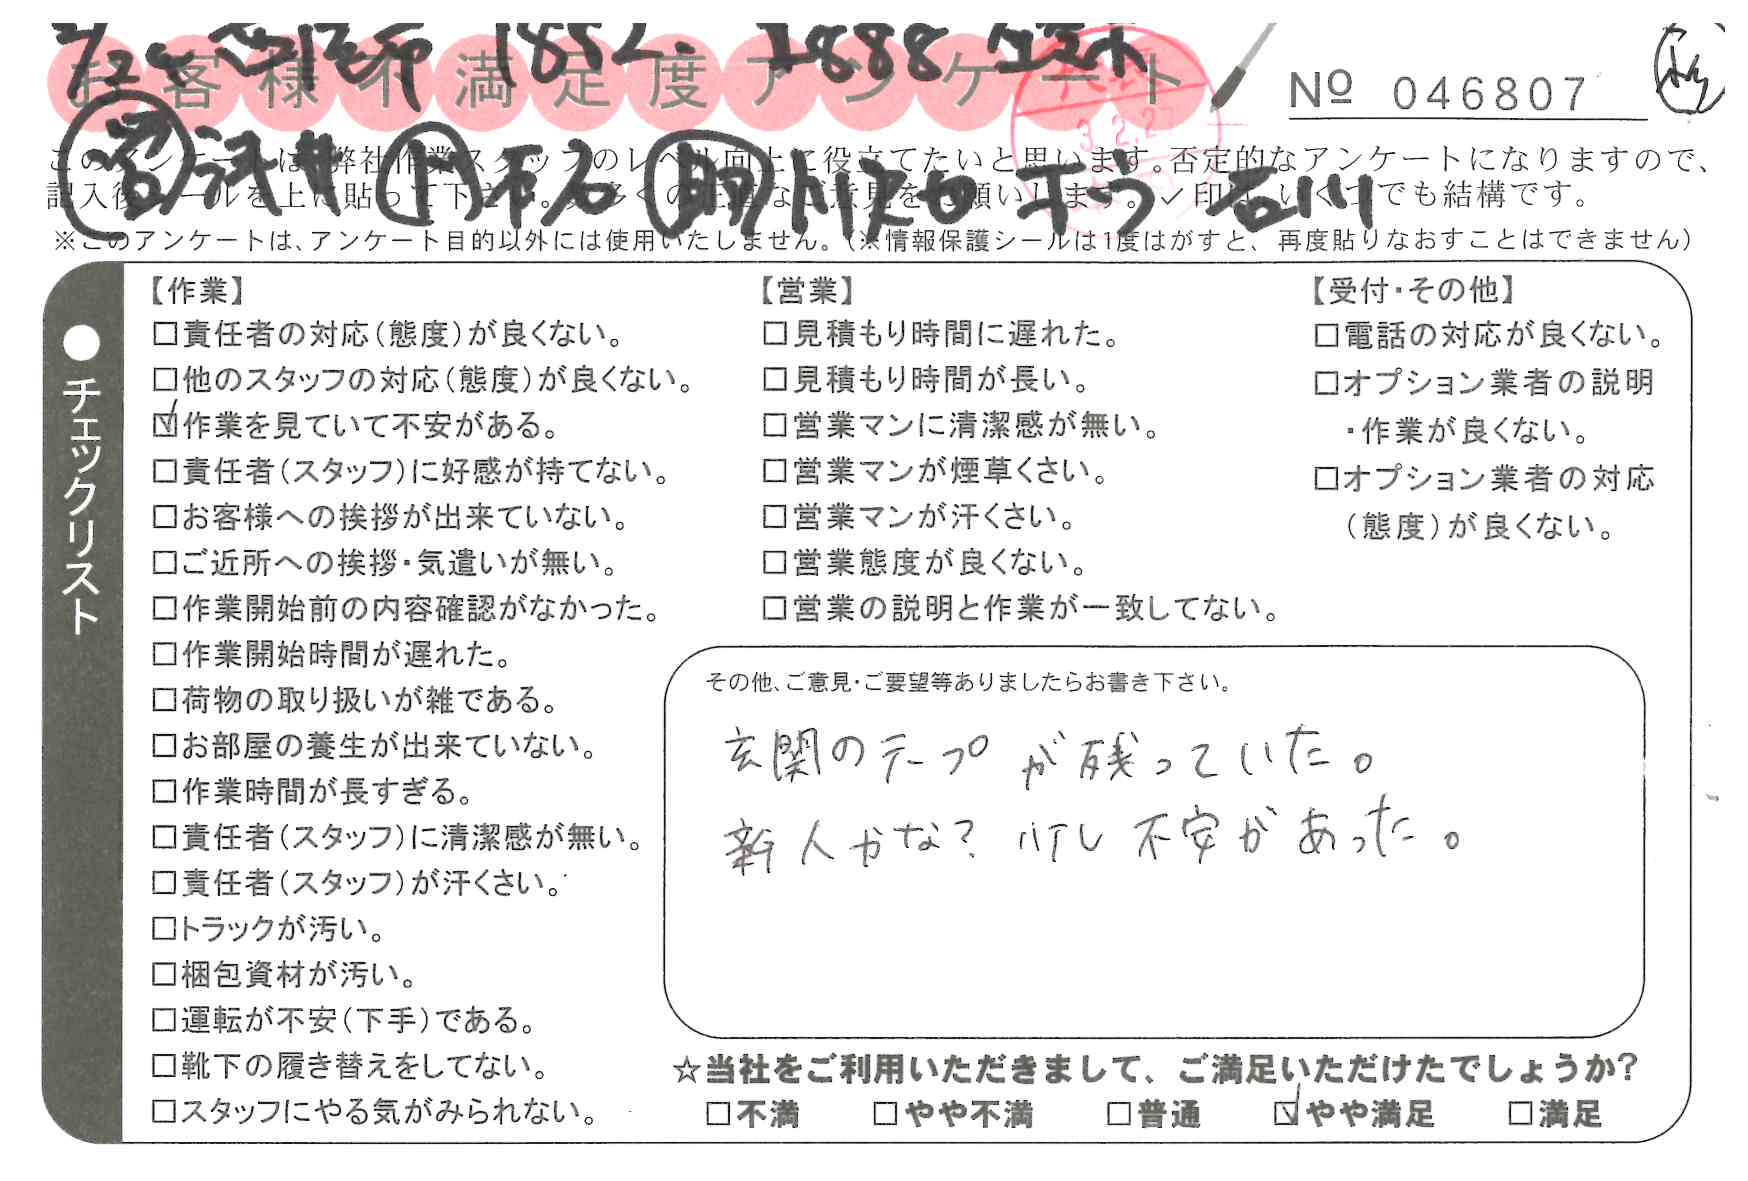 お客様不満足度アンケート
№ 046807
このアンケートは、弊社作業スタッフのレベル向上に役立てたいと思います。否定的なアンケートになりますので、
記入後シールを上に貼って下さい。数多くの正直なご意見をお願いします。✓印は、いくつでも結構です。
※このアンケートは、アンケート目的以外には使用いたしません。(※情報保護シールは1度はがすと、再度貼りなおすことはできません)
●チェックリスト
【作業】
□責任者の対応(態度)が良くない。
□他のスタッフの対応(態度)が良くない。
☑作業を見ていて不安がある。
□責任者(スタッフ)に好感が持てない。
□お客様への挨拶が出来ていない。
□ご近所への挨拶・気遣いが無い。
□作業開始前の内容確認がなかった。
□作業開始時間が遅れた。
□荷物の取り扱いが雑である。
□お部屋の養生が出来ていない。
□作業時間が長すぎる。
□責任者(スタッフ)に清潔感が無い。
□責任者(スタッフ)が汗くさい。
□トラックが汚い。
□梱包資材が汚い。
□運転が不安(下手)である。
□靴下の履き替えをしてない。
□スタッフにやる気がみられない。
【営業】
□見積もり時間に遅れた。
□見積もり時間が長い。
□営業マンに清潔感が無い。
□営業マンが煙草くさい。
□営業マンが汗くさい。
□営業態度が良くない。
□営業の説明と作業が一致してない。
【受付・その他】
□電話の対応が良くない。
□オプション業者の説明
・作業が良くない。
□オプション業者の対応
(態度)が良くない。
その他、ご意見・ご要望等ありましたらお書き下さい。
玄関のテープが残っていた。
新人かな? 少し不安があった。
☆当社をご利用いただきまして、ご満足いただけたでしょうか?
□不満 □やや不満 □普通 ☑やや満足 □満足